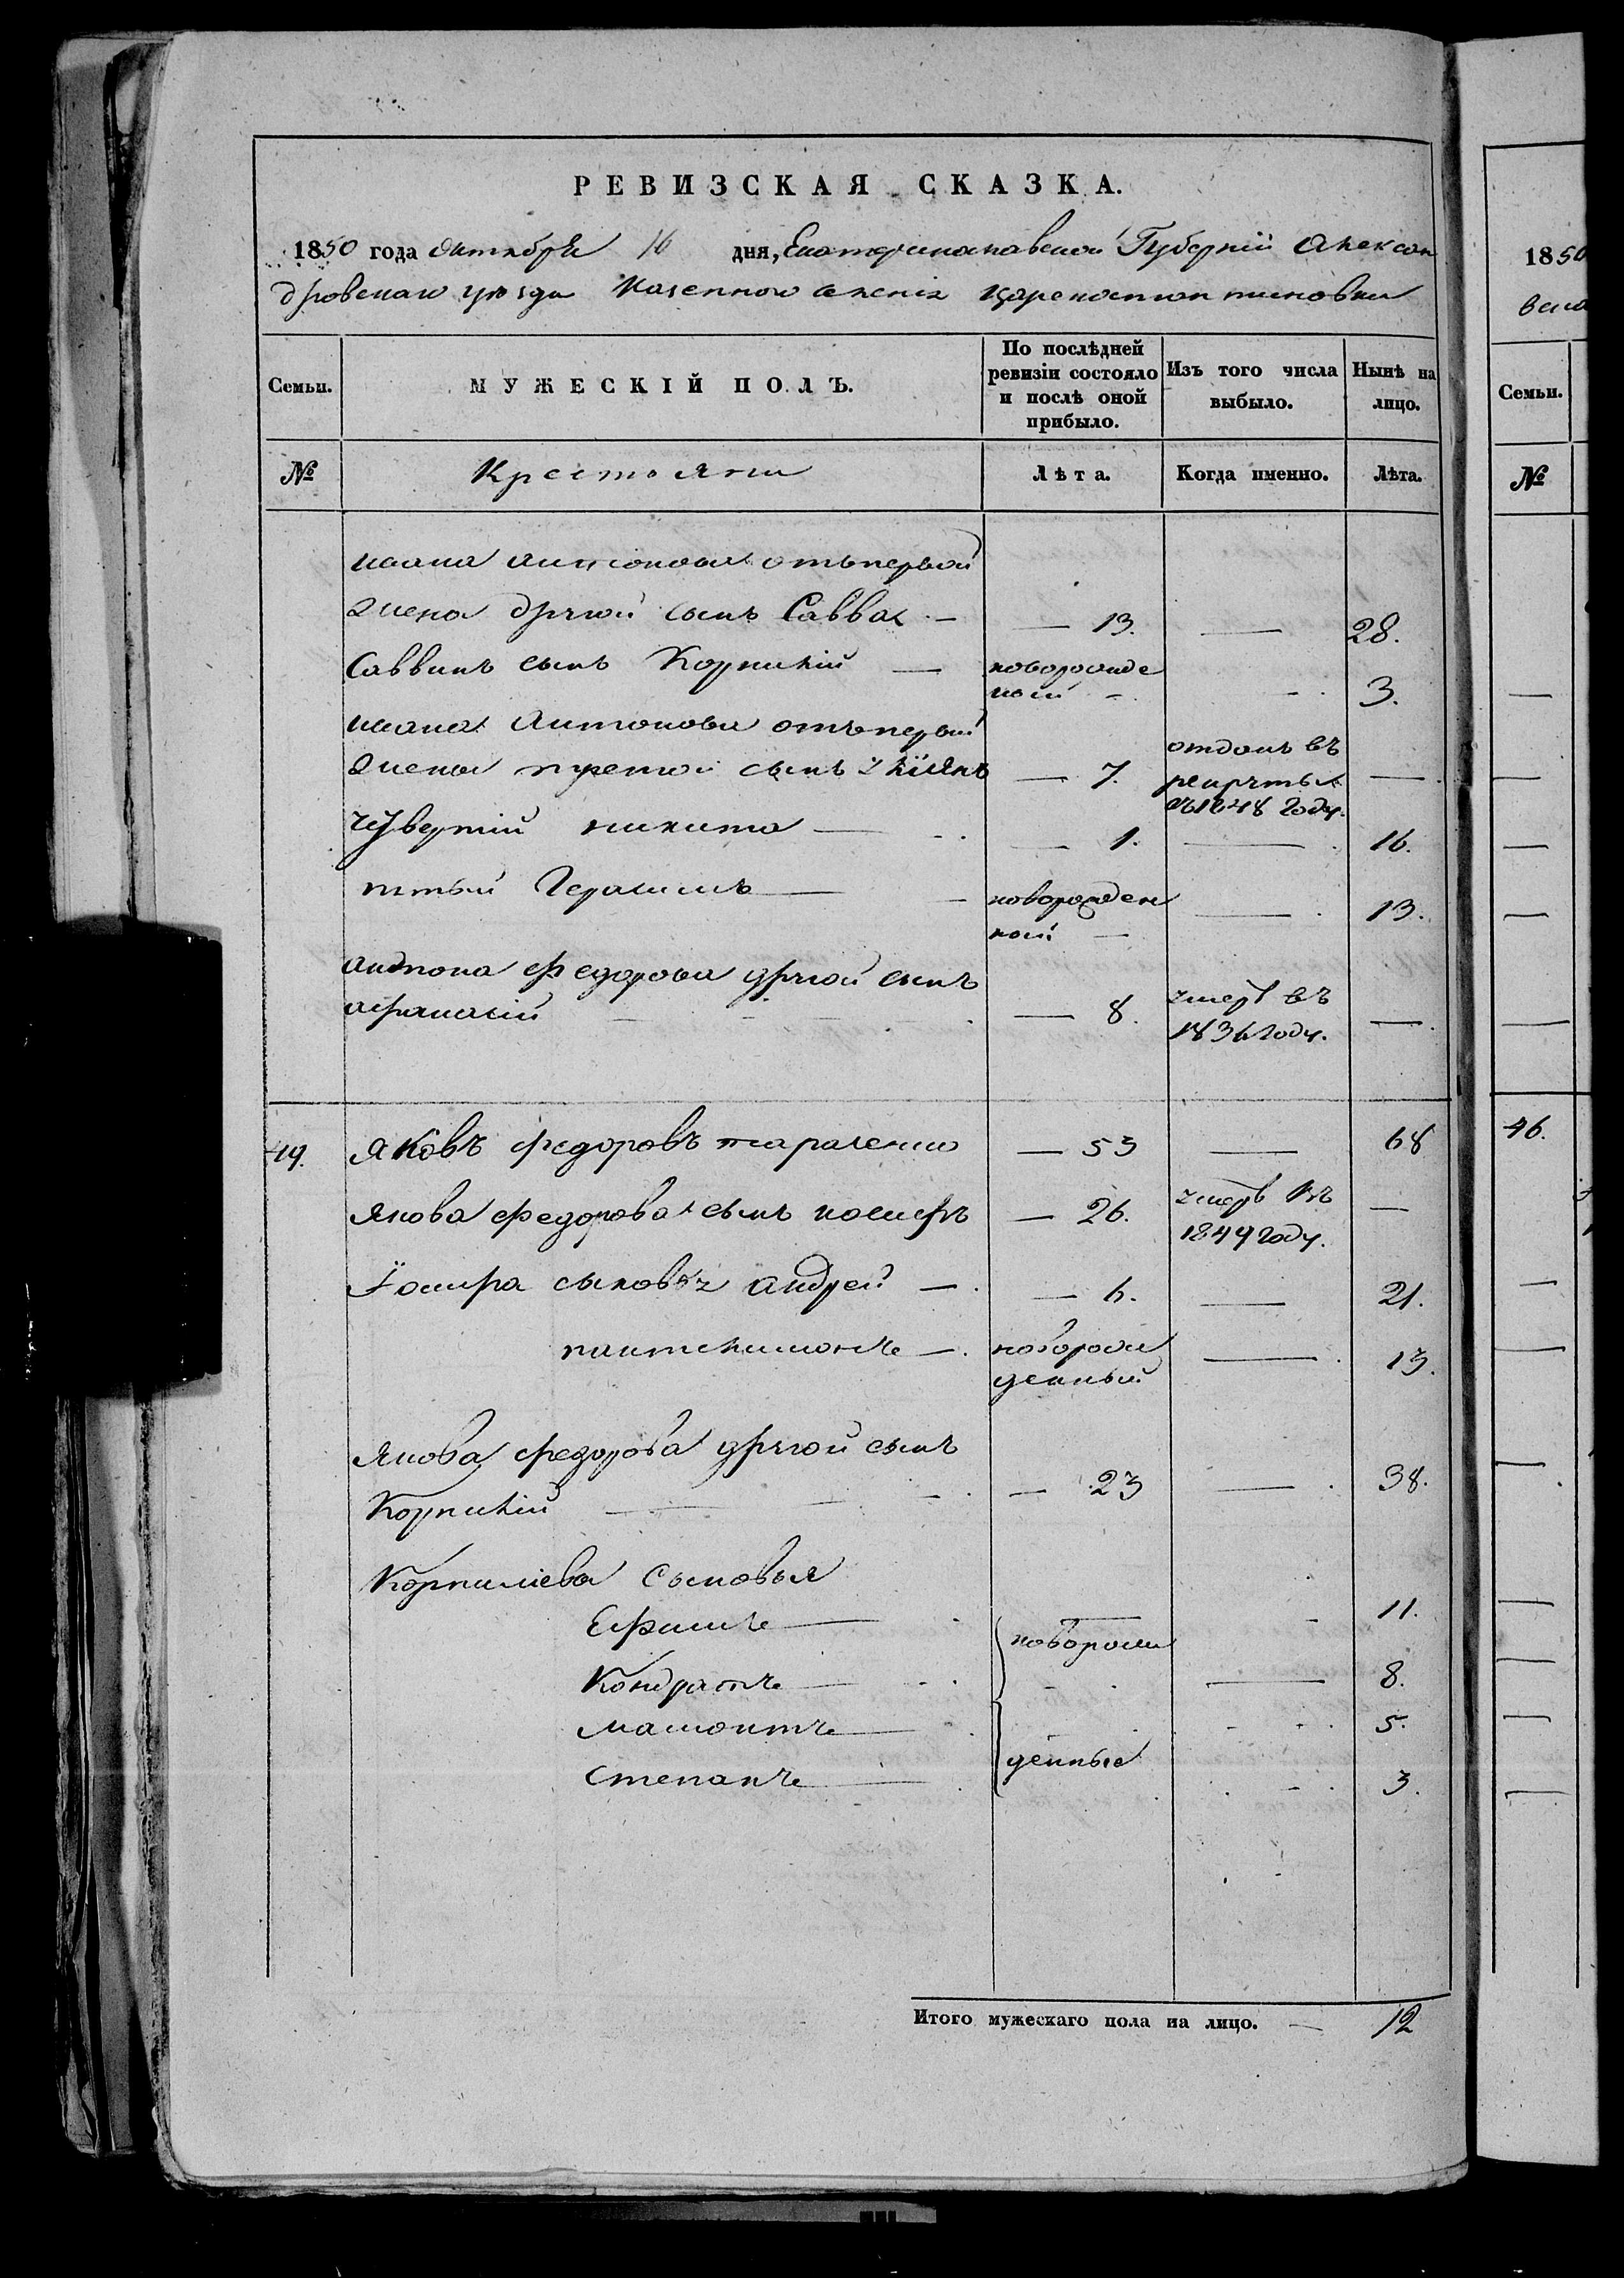 РЕВИЗСКАЯ СКАЗКА.
1850 года Октября 16 дня, Екатеринославской Губернии Алексан
дровскаго уезда Казенного селения Цареконстантиновки
Семьи. МУЖЕСКІЙ ПОЛЪ. По послѣдней ревизіи состояло и послѣ оной прибыло. Изъ того числа выбыло. Нынѣ на лицо.
№ Крестьяни Лѣта. Когда именно. Лѣта.
ивана антонова отъ первой
жена другой сынъ Савва — — 13. — 28.
Саввинъ сынъ Корнилій — новорожде
ной - 3.
ивана Антонова отъ первой
жены третой сынъ — 7. отданъ въ рекруты въ 1848 году. —
четвертій никита — 1. — 16.
пятый Герасимъ — новорожден
ной — — 13.
антона федорова другой сынъ
афанасій — 8. умеръ въ 1836 году. —
49. Яковъ федоровъ тарасенко — 53 — 68
Якова федорова сынъ иосифъ — 26. умеръ въ 1849 году. —
Іосифа сыновья андрей — — 6. — 21.
пантелимонъ — новорож
денный — 13.
Якова федорова другой сынъ
Корнилій — 23 — 38.
Корниліева Сыновья
Ефимъ — 11.
новорож
Кондратъ — — 8.
мамонтъ — 5.
денные
Степанъ — 3.
Итого мужескаго пола на лицо. — 12
1850
Семьи.
№
46.